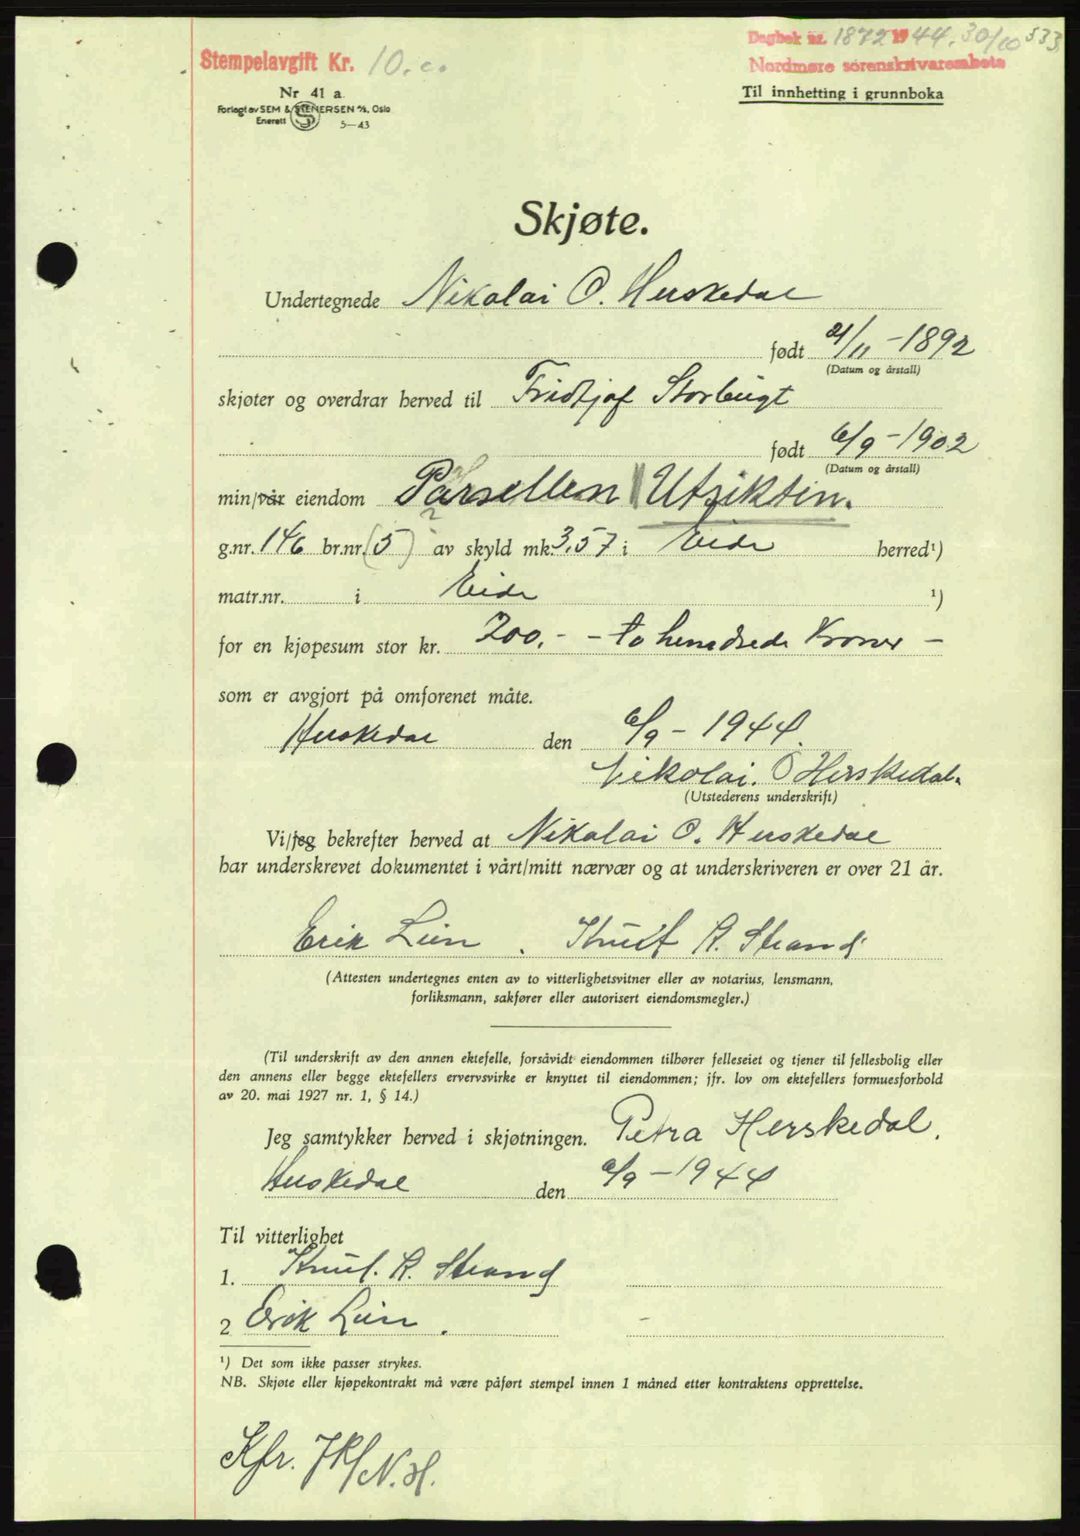 Stempelavgift Kr. 10.00
Dagbok nr. 1872 1944. 30/10 533
Nordmøre sorenskrivarembete
Nr 41 a
Til innhetting i grunnboka
Forlagt av SEM & STENERSEN A/S, Oslo
Enerett S 5—43
Skjøte.
Undertegnede Nikolai O. Herskedal
født 21/11 - 1892
(Datum og årstall)
skjøter og overdrar herved til Fridtjof Storbugt
født 6/9 - 1902
(Datum og årstall)
min/vår eiendom Parsellen Utsikten.
g.nr. 146 br.nr. (5) ? av skyld mk. 3,57 i Eide herred¹)
matr.nr. i Eide ¹)
for en kjøpesum stor kr. 200.- - to hundrede kroner -
som er avgjort på omforenet måte.
Herskedal den 6/9 - 1944.
Nikolai. O Herskedal.
(Utstederens underskrift)
Vi/jeg bekrefter herved at Nikolai O. Herskedal
har underskrevet dokumentet i vårt/mitt nærvær og at underskriveren er over 21 år.
Erik Lien . Knut R. Strand
(Attesten undertegnes enten av to vitterlighetsvitner eller av notarius, lensmann,
forliksmann, sakfører eller autorisert eiendomsmegler.)
(Til underskrift av den annen ektefelle, forsåvidt eiendommen tilhører felleseiet og tjener til fellesbolig eller
den annens eller begge ektefellers ervervsvirke er knyttet til eiendommen; jfr. lov om ektefellers formuesforhold
av 20. mai 1927 nr. 1, § 14.)
Jeg samtykker herved i skjøtningen. Petra Herskedal.
Herskedal den 6/9 - 1944
Til vitterlighet
1. Knut. R. Strand
2 Erik Lien .
¹) Det som ikke passer strykes.
NB. Skjøte eller kjøpekontrakt må være påført stempel innen 1 måned etter kontraktens opprettelse.
Kfr. JK/N.H.